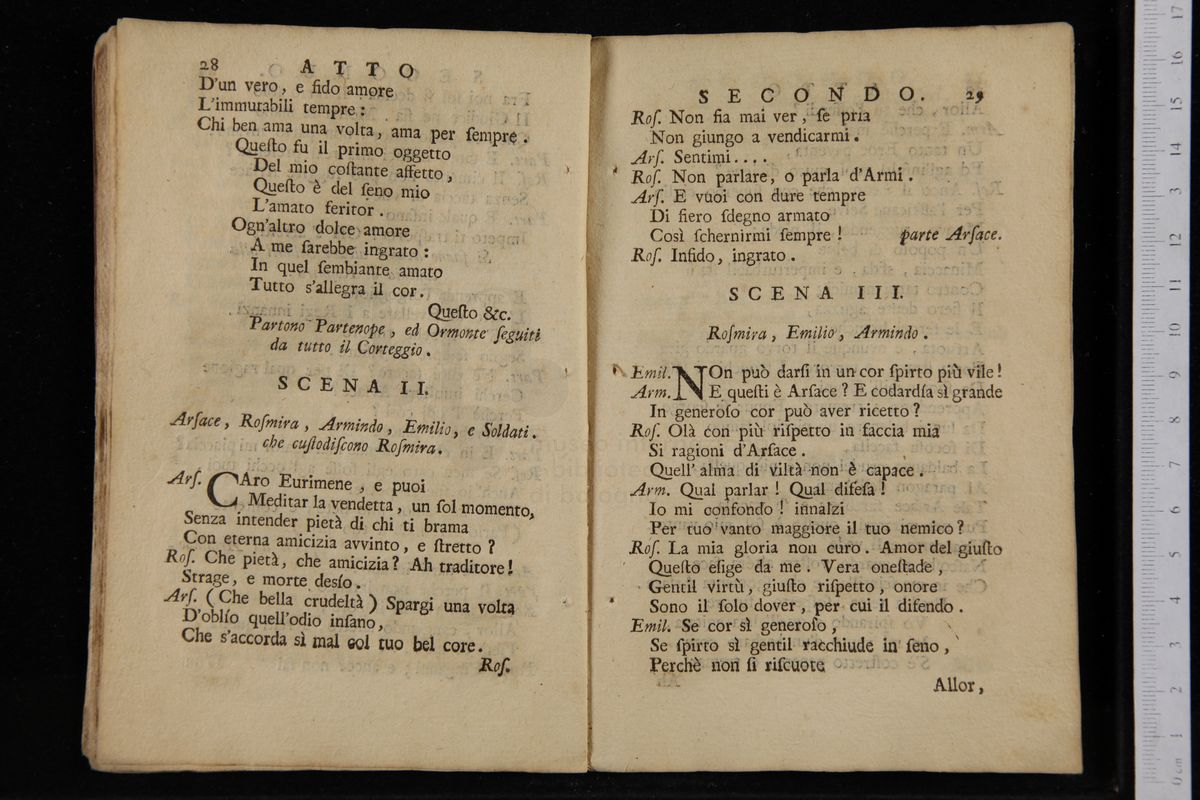 28 ATTO
D'un vero, e fido amore
L'immutabili tempre:
Chi ben ama una volta, ama per ſempre.
Queſto fu il primo oggetto
Del mio coſtante affetto,
Queſto è del ſeno mio
L'amato feritor.
Ogn'altro dolce amore
A me ſarebbe ingrato:
In quel ſembiante amato
Tutto s'allegra il cor.
Queſto &c.
Partono Partenope, ed Ormonte ſeguiti
da tutto il Corteggio.
SCENA II.
Arſace, Roſmira, Armindo, Emilio, e Soldati.
che cuſtodiſcono Roſmira.
Arſ. CAro Eurimene, e puoi
Meditar la vendetta, un ſol momento,
Senza intender pietà di chi ti brama
Con eterna amicizia avvinto, e ſtretto?
Roſ. Che pietà, che amicizia? Ah traditore!
Strage, e morte desſo.
Arſ. (Che bella crudeltà) Spargi una volta
D'oblſo quell'odio inſano,
Che s'accorda sì mal col tuo bel core.
Roſ.
SECONDO. 29
Roſ. Non fia mai ver, ſe pria
Non giungo a vendicarmi.
Arſ. Sentimi....
Roſ. Non parlare, o parla d'Armi.
Arſ. E vuoi con dure tempre
Di fiero ſdegno armato
Così ſchernirmi ſempre! parte Arſace.
Roſ. Infido, ingrato.
SCENA III.
Roſmira, Emilio, Armindo.
Emil. NOn può darſi in un cor ſpirto più vile!
Arm. E queſti è Arſace? E codardſa sì grande
In generoſo cor può aver ricetto?
Roſ. Olà con più riſpetto in faccia mia
Si ragioni d'Arſace.
Quell' alma di viltà non è capace.
Arm. Qual parlar! Qual difeſa!
Io mi confondo! innalzi
Per tuo vanto maggiore il tuo nemico?
Roſ. La mia gloria non curo. Amor del giuſto
Queſto eſige da me. Vera oneſtade,
Gentil virtù, giuſto riſpetto, onore
Sono il ſolo dover, per cui il difendo.
Emil. Se cor sì generoſo,
Se ſpirto sì gentil racchiude in ſeno,
Perchè non ſi riſcuote
Allor,